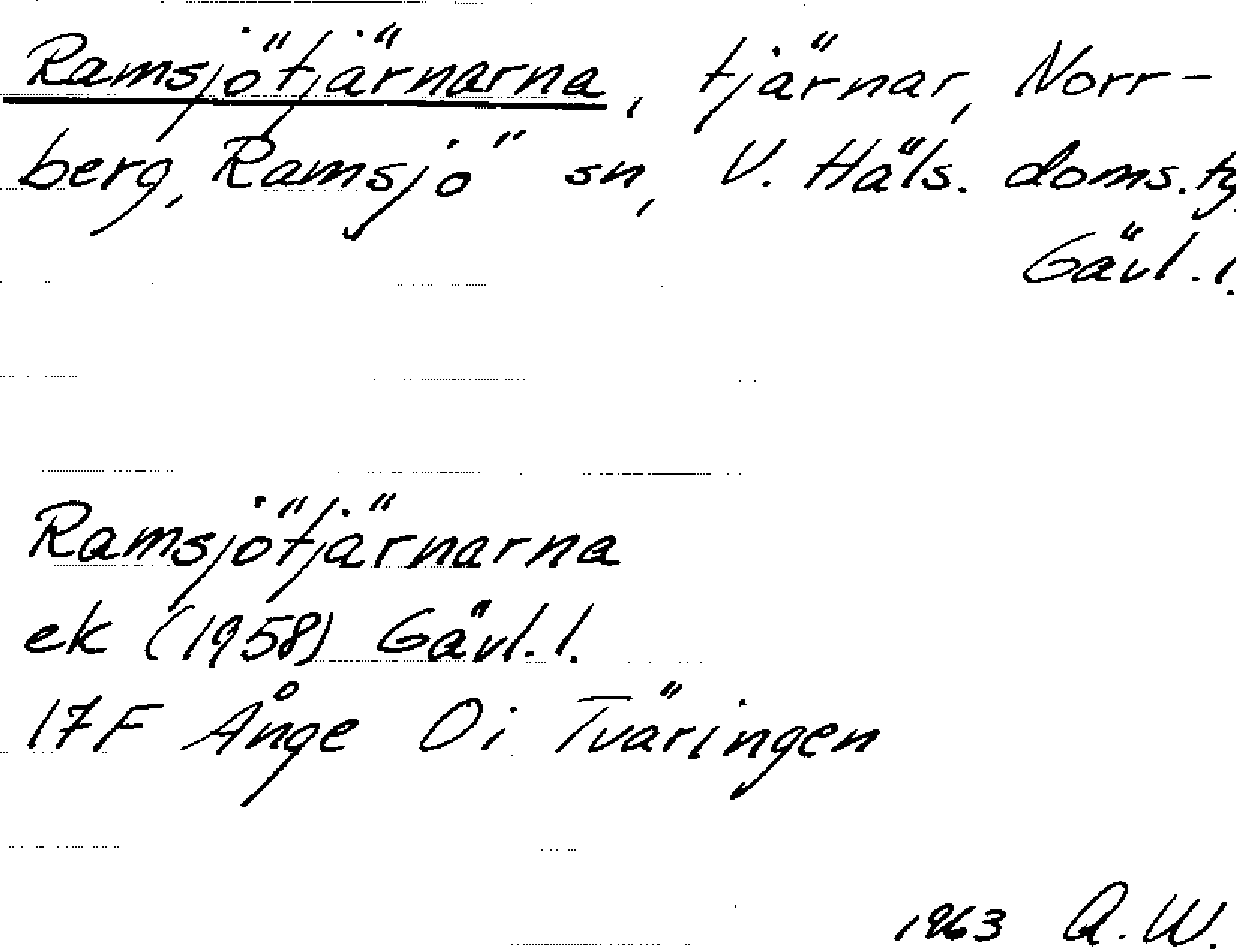 Ramsjötjärnarna, tjärnar, Norr-
berg, Ramsjö sn, V. Häls. doms.
Gävl.l.
Ramsjötjärnarna
ek (1958) Gävl.l.
17F Ånge 0i Tväringen
1963 A.W.